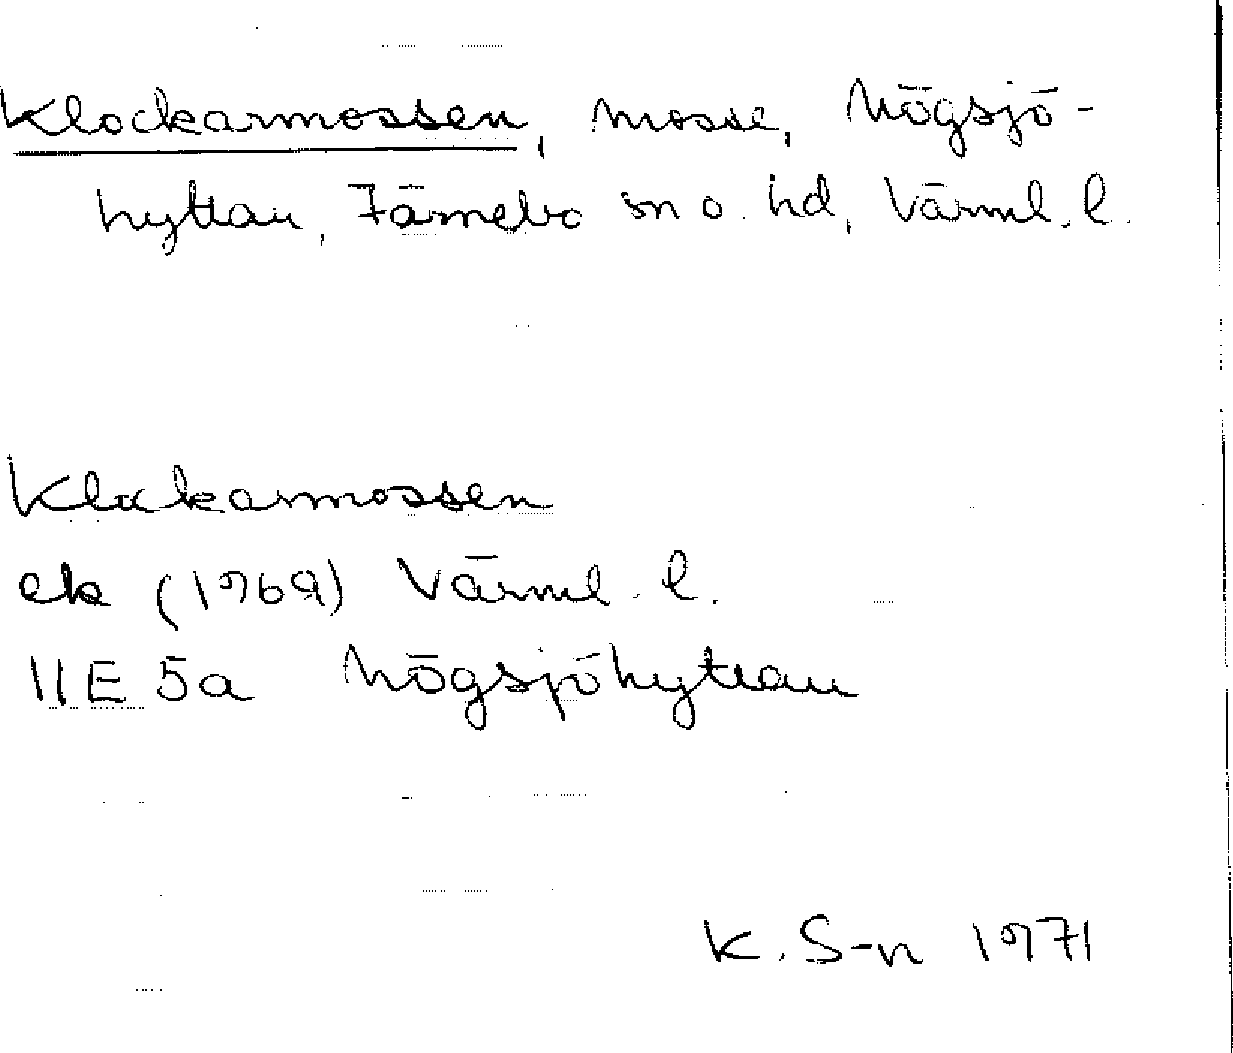 Klockarmossen, mosse, Högsjö-
hyttan, Färnebo sn o. hd, Värml. l.
Klockarmossen
ek (1969) Värml. l.
11E 5a Högsjöhyttan
K. S-n 1971